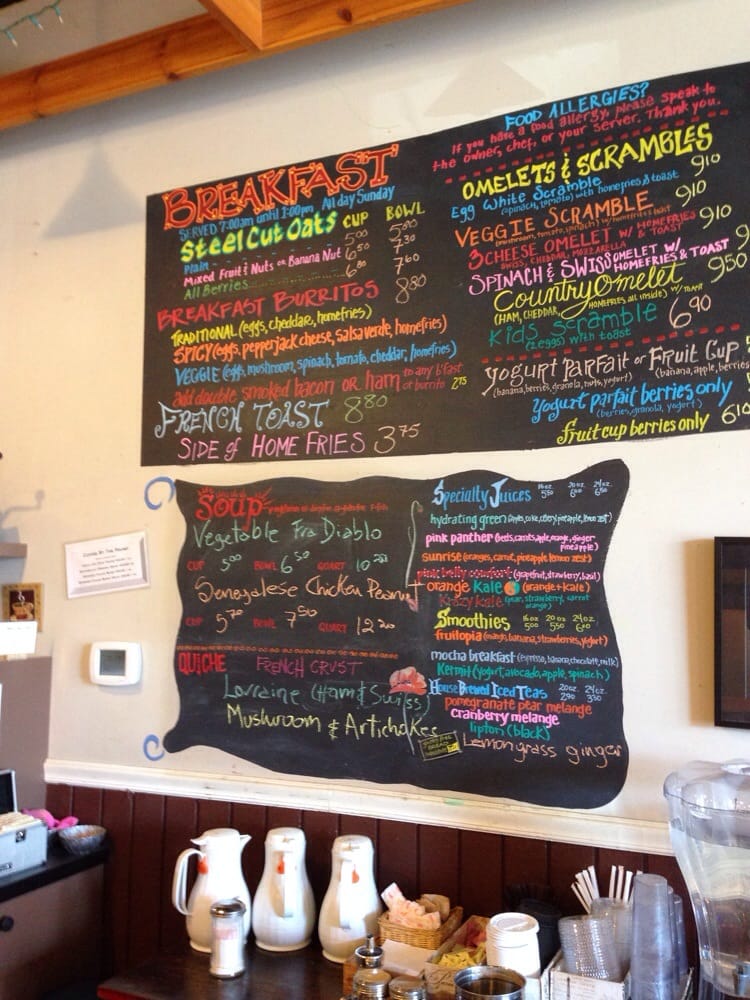 BREAKFAST
SERVED 7:00am until 1:00pm All day Sunday
Steel Cut Oats CUP BOWL
Plain 5.00 7.30
Mixed Fruit & Nuts or Banana Nut 6.50 7.60
All Berries 6.80 8.80
BREAKFAST BURRITOS
TRADITIONAL (eggs, cheddar, homefries)
SPICY (eggs, pepperjack cheese, salsa verde, homefries)
VEGGIE (eggs, mushroom, spinach, tomato, cheddar, homefries)
add double smoked bacon or ham to any b'fast or burrito 2.75
FRENCH TOAST 8.80
SIDE of HOME FRIES 3.75
FOOD ALLERGIES?
If you have a food allergy, please speak to
the owner, chef, or your server. Thank you.
OMELETS & SCRAMBLES
Egg White Scramble 9.10
(spinach, tomato) with homefries & toast
VEGGIE SCRAMBLE 9.10
(mushroom, tomato, spinach) w/ homefries & toast
3 CHEESE OMELET W/ HOMEFRIES & TOAST 9.10
SWISS, CHEDDAR, MOZZARELLA
SPINACH & SWISS OMELET W/ HOMEFRIES & TOAST 9
Country Omelet 9.50
(HAM, CHEDDAR, HOMEFRIES, all inside) w/ TOAST
Kids Scramble 6.90
(2 eggs) with toast
Yogurt Parfait or Fruit Cup
(banana, berries, granola, nuts, yogurt) (banana, apple, berries
Yogurt parfait berries only
(berries, granola, yogurt)
fruit cup berries only 6.10
SOUP
Vegetable Fra Diablo
CUP 5.00 BOWL 6.50 QUART
Senegalese Chicken Peanut
CUP 5.70 BOWL 7.50 QUART 12.20
QUICHE FRENCH CRUST
Lorraine (Ham & Swiss)
Mushroom & Artichokes
Specialty Juices 16oz. 5.50 20oz. 6.00 24oz. 6.50
hydrating green
pink panther (beets, carrots, apple, orange, ginger pineapple)
sunrise (oranges, carrot, pineapple lemon zest)
pink belly comfort (grapefruit, strawberry, basil)
orange Kale (orange + kale)
Krazy kale (pear, strawberry, carrot orange)
Smoothies 16oz 5.00 20oz 5.50 24oz 6.00
fruitopia (mango, banana, strawberries, yogurt)
mocha breakfast (espresso, banana, chocolate, milk)
Kermit (yogurt, avocado, apple, spinach)
House Brewed Iced Teas 20oz. 2.90 24oz. 3.30
pomegranate pear melange
cranberry melange
lipton (black)
Lemongrass ginger